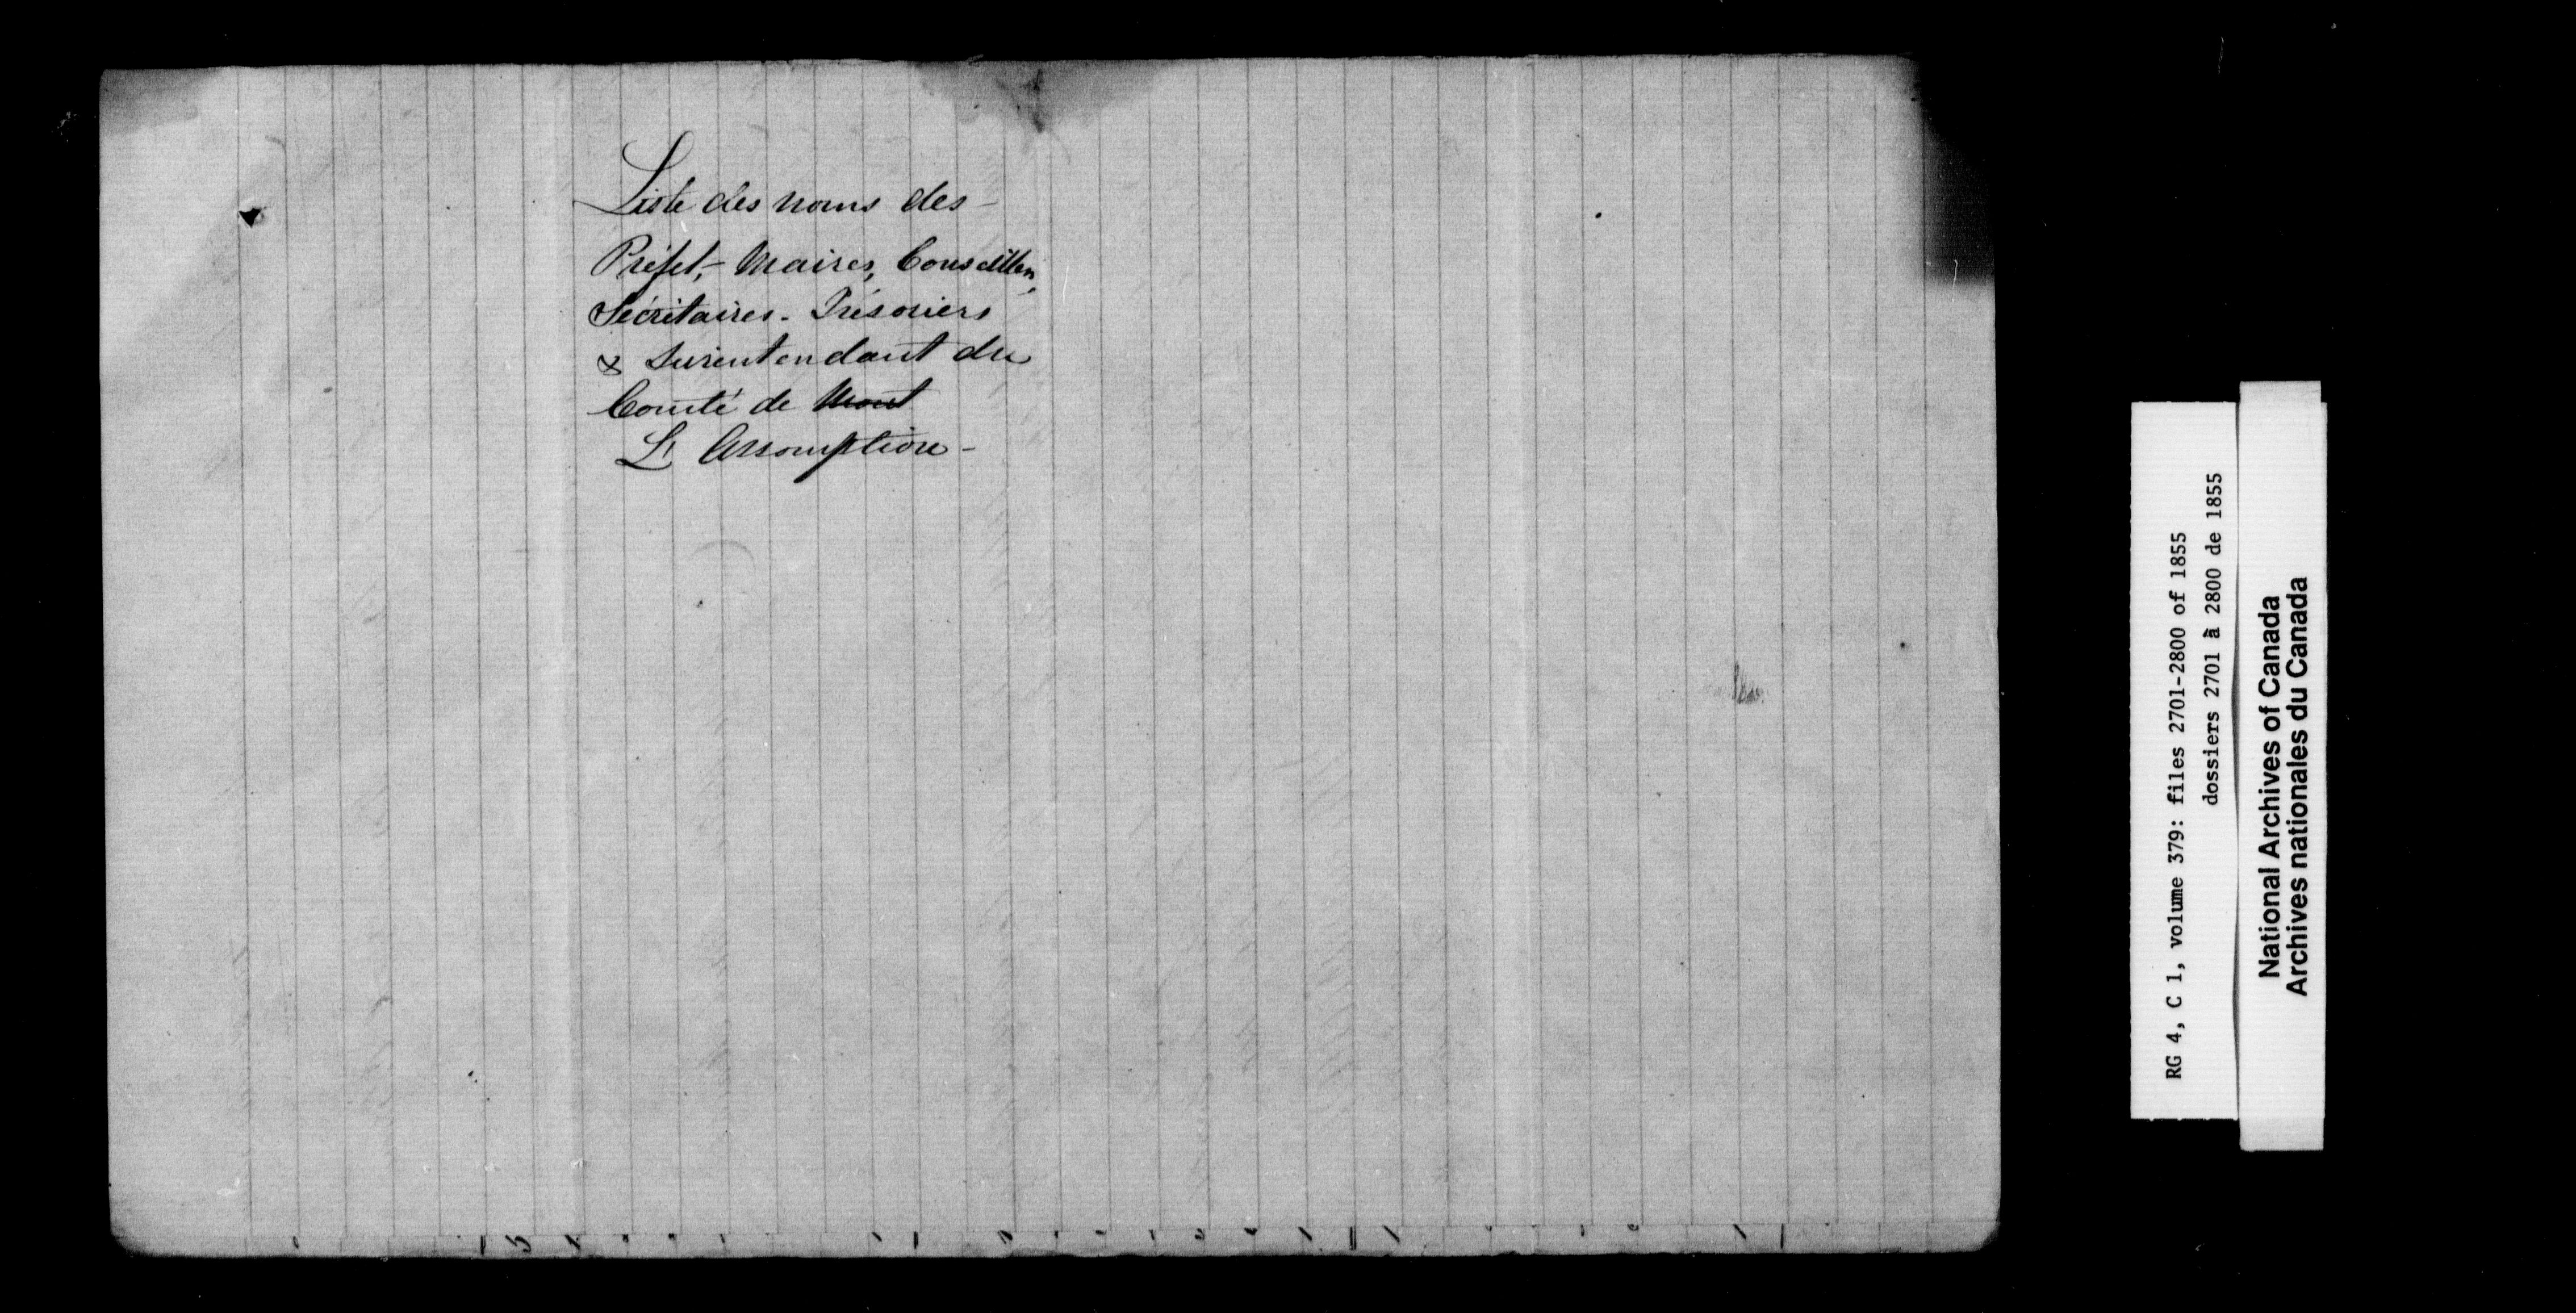 Liste des noms des -
Préfet, - Maires, Conseillers,
Sécrétaires - Trésoriers
& Surintendant du
Comté de Mont
L'Assomption -
RG 4, C 1, volume 379: files 2701-2800 of 1855
dossiers 2701 à 2800 de 1855
National Archives of Canada
Archives nationales du Canada